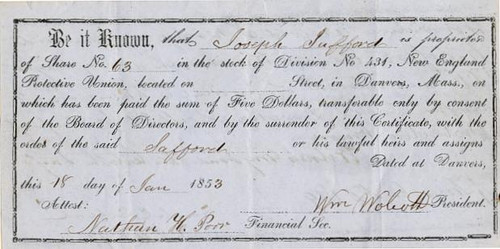 Be it Known, that Joseph Safford is proprietor
of Share No. 63 in the stock of Division No 431, New England
Protective Union, located on Street, in Danvers, Mass., on
which has been paid the sum of Five Dollars, transferable only by consent
of the Board of Directors, and by the surrender of this Certificate, with the
order of the said Safford or his lawful heirs and assigns
Dated at Danvers,
this 18 day of Jan 1853
Wm Wolcott President.
Attest:
Nathan H. Poor Financial Sec.